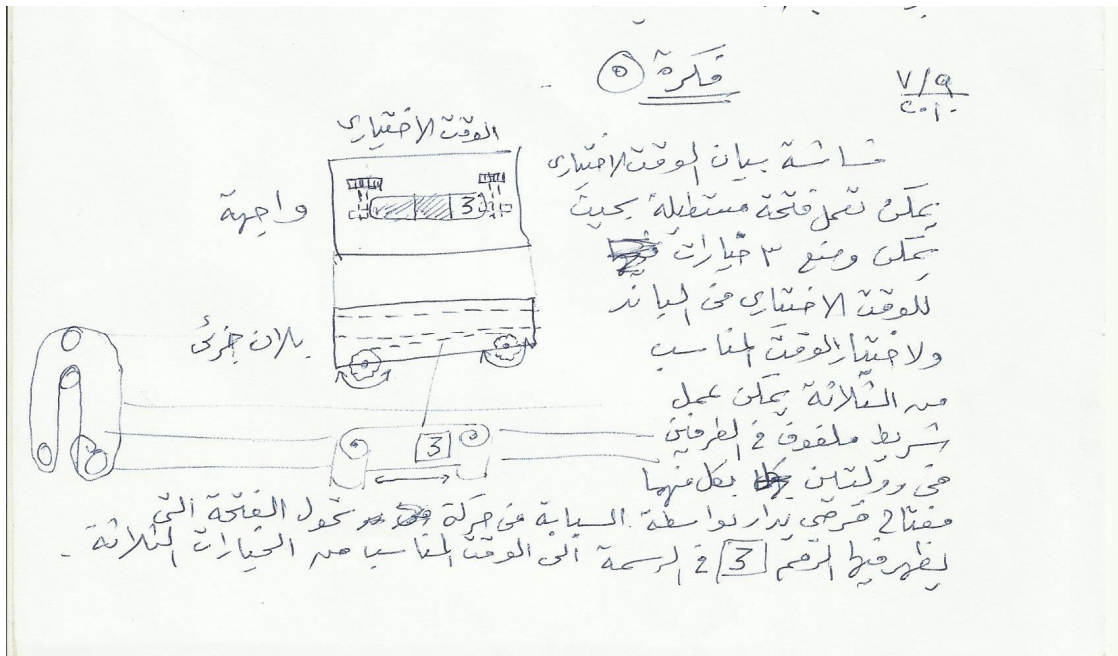 فكرة ٥
٧/٩
٢٠١٠
الوقت الاختياري
شاشة بيان الوقت الاختياري
يمكن تعمل فتحة مستطيلة بحيث
واجهة
3
يمكن وضع ٣ خيارات
للوقت الاختياري في
بلان جزئى
ولاختيار الوقت المناسب
من الثلاثة يمكن عمل
شريط ملفوف في الطرفين
3
في رولتين بكل منهما
مفتاح قرصي يدار بواسطة السبابة في حركة تحول الفتحة التي
يظهر فيها الرقم 3 في الرسمة الى الوقت المناسب من الخيارات الثلاثة.